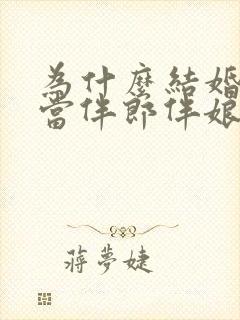 為什麼結婚
當伴郎伴娘
蔣夢婕